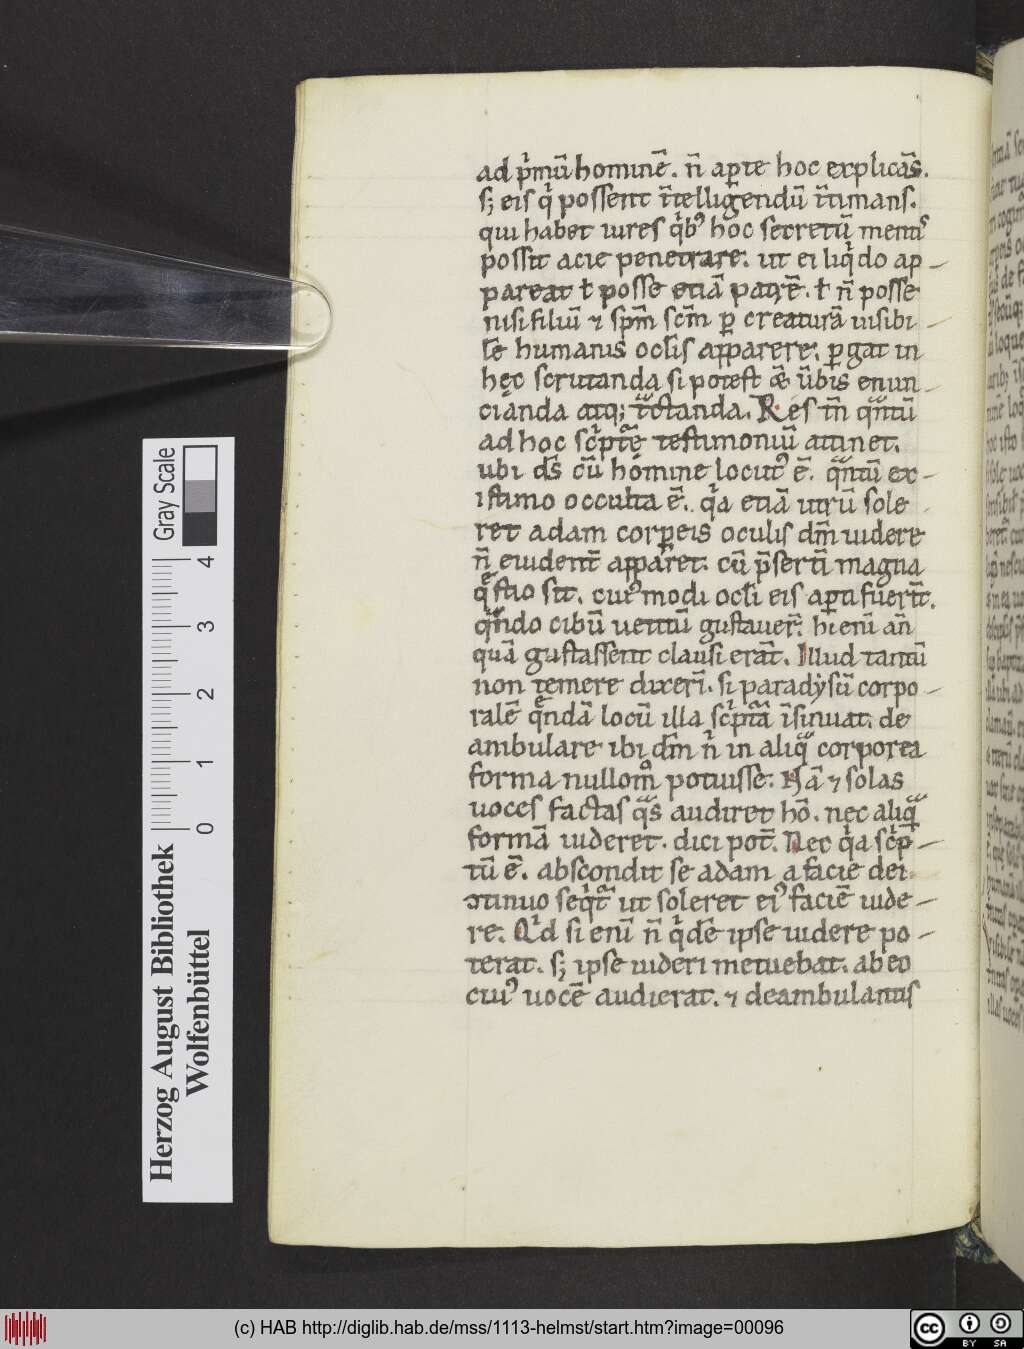 ad p͛mū hominē. n̄ aꝑte hoc explicās̄.
s; eis q̇ possent ītelligendū ītimans.
qui habet uires q̇bꝰ hoc secretū mentꝭ
possit acie penetrare. ut ei liq̇do ap-
pareat ł posse etiā patrē. ł n̄ posse
nisi filiū ⁊ sp̄m sc̄m ꝑ creaturā uisibi-
lē humanis oclis apparere. ꝑgat in
hęc scrutanda si potest & ūbis enun-
cianda atq; tͣctanda. Res tn̄ qͣntū
ad hoc sc͛ptę̄ testimoniū attinet.
ubi ds̄ cū homine locutꝰ ē. qͣntū ex-
istimo occulta ē. q̇a etiā utrū sole
ret adam corꝑeis oculis dm̄ uidere
n̄ euident̄ appāret. cū p̄sertī magna
q̄stio sit. cuiꝰmodi ocli eis aꝑti fuerīt.
qͣndo cibū uetitū gustauer̄. hi enī an̄
quā gustassent clausi erāt. Illud tantū
non temere dixerī. si paradẏsū corpo-
ralē q̄ndā locū illa sc͛ptͣā īsinuat. de
ambulare ibi dm̄ n͛ in aliqͣ corporea
forma nullomͦ potuisse. Nā ⁊ solas
uoces factas qͣs audiret hō. nec aliqͣ
formā uideret. dici pot̄. Nec q̇a sc͛p-
tū ē. abscondit se adam a facie dei
ↄtinuo seq̇tͬ ut soleret eiꝰ faciē uide-
re. Qͥd si enī n̄ q̇dē ipse uidere po-
terat. s; ipse uideri metuebat. ab eo
cuiꝰ uocē audierat. ⁊ deambulantis
Herzog August Bibliothek
Wolfenbüttel
Gray Scale
0 1 2 3 4
(c) HAB http://diglib.hab.de/mss/1113-helmst/start.htm?image=00096
cc BY SA